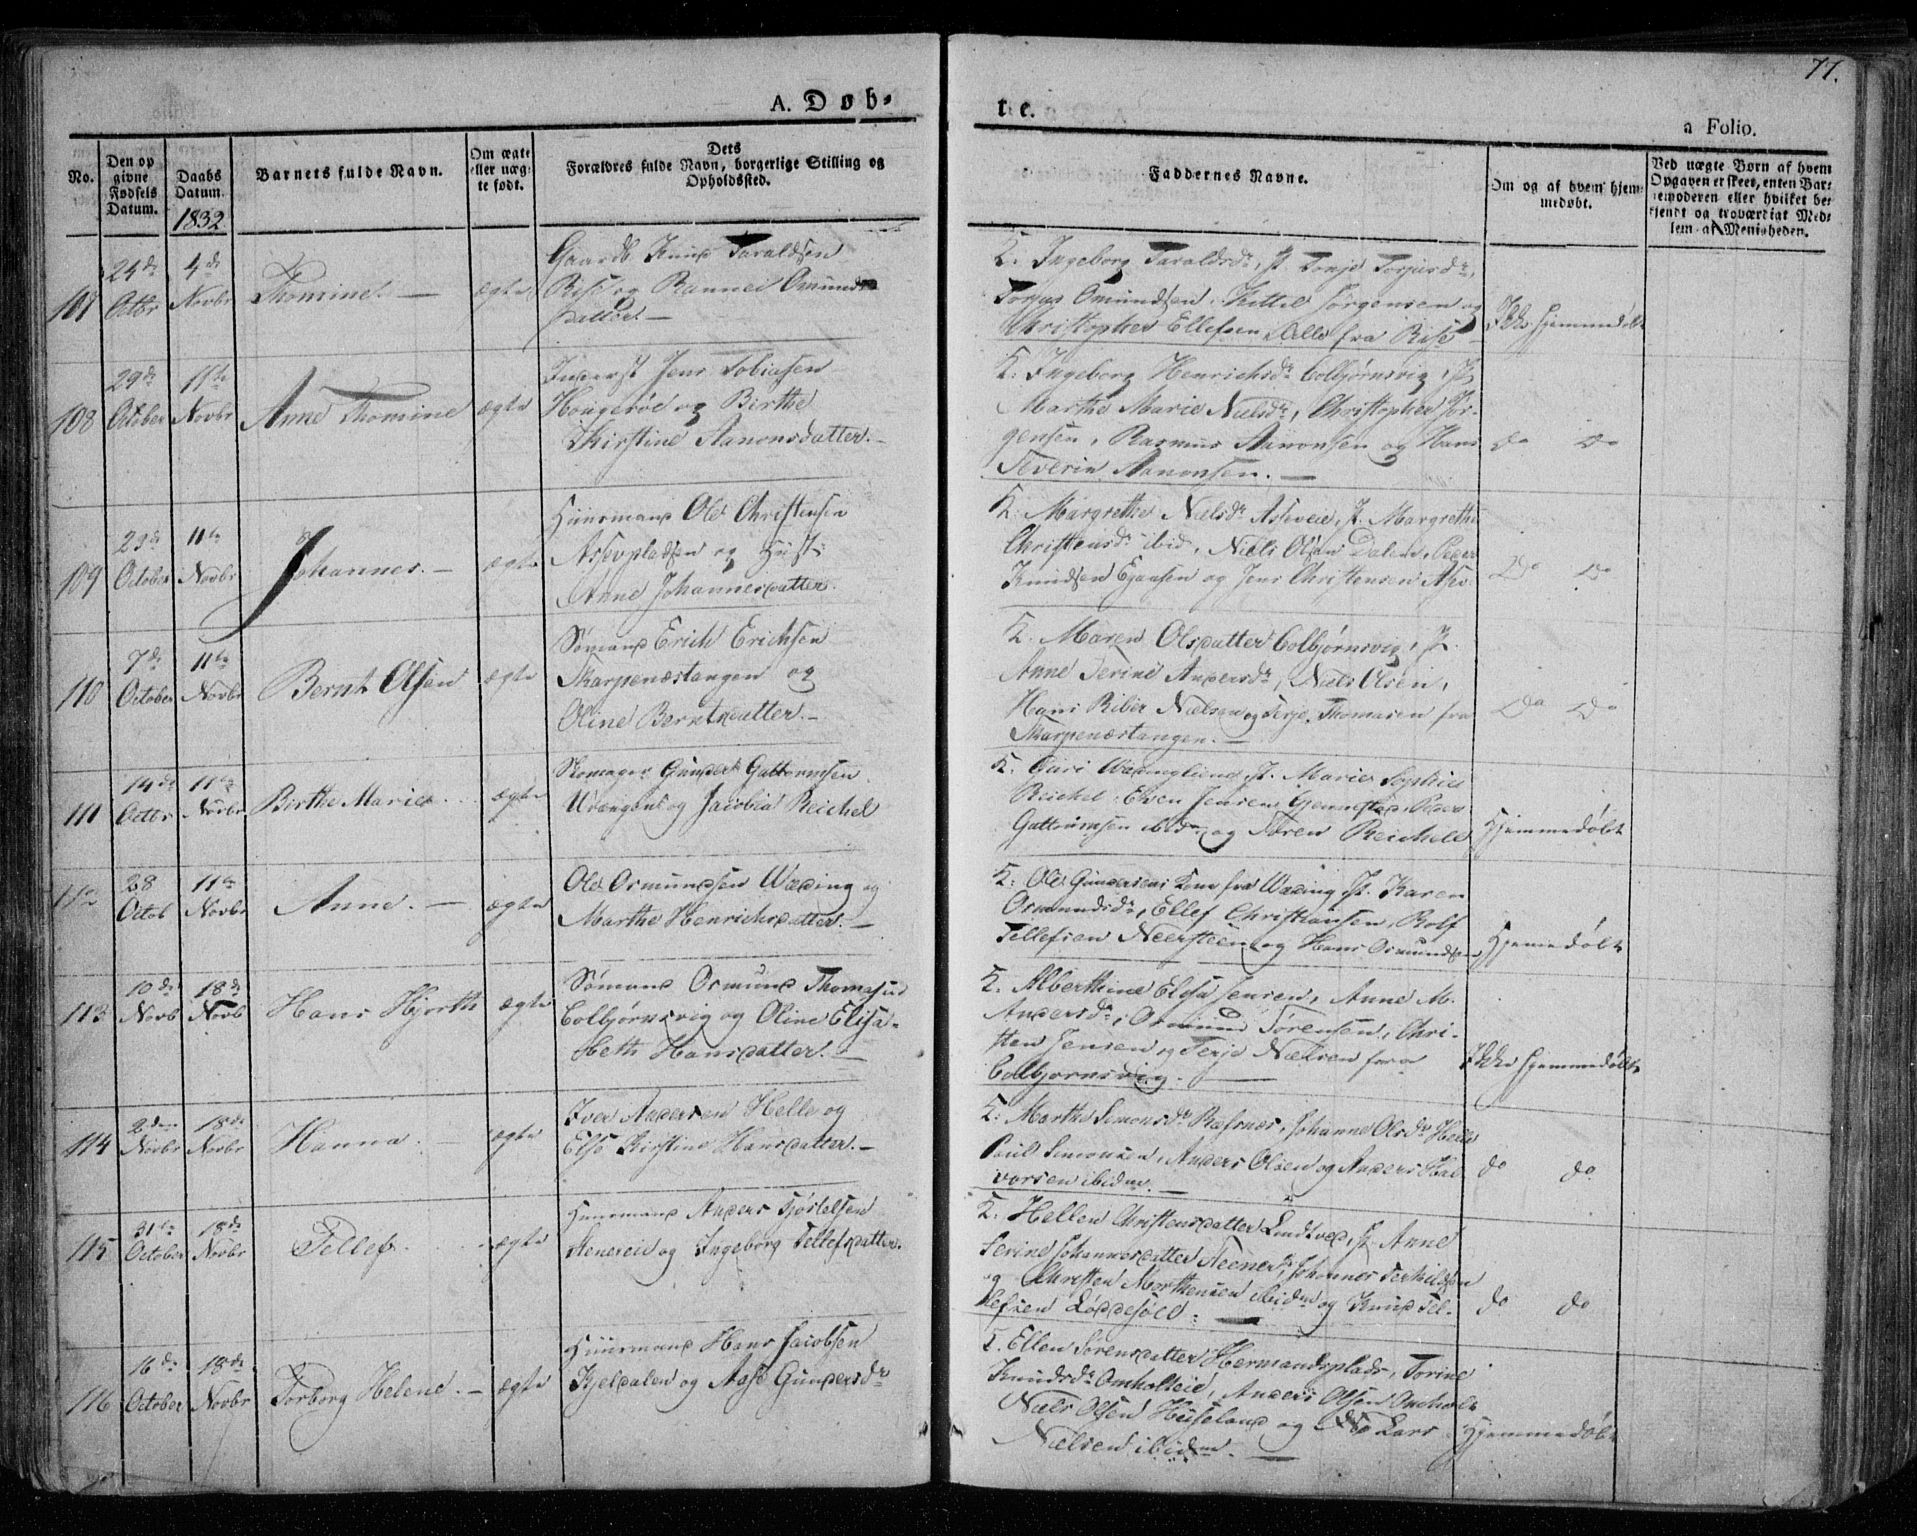 A. Døb-
te.
77.
a Folio.
No.
Den op
givne
Fødsels
Datum.
Daabs
Datum.
1832
Barnets fulde Navn.
Om ægte
eller uæg-
te født.
Dets
Forældres fulde Navn, borgerlige Stilling og
Opholdssted.
Faddernes Navne.
Om og af hvem hjem-
medøbt.
Ved uægte Børn af hvem
Opgaven er skeet, enten Bar-
nemoderen eller hvilket be-
kjendt og troværdigt Med-
lem af Menigheden.
107
24de
Octbr
4de
Novbr
Thomine. —
ægte
Gaardb Knud Taraldsen
Rise og Omunds
datter. —
K. Ingeborg Taraldsdr, P. Tonje Torjusdr,
Torjus Omundsen, Kittel Jørgensen og
Christopher Ellefsen, alle fra Rise
Ikke hjemmedøbt
108
29de
October
11te
Novbr
Anne Thomine
ægte
Inderst Jens Tobiasen
Hougerøe og Birthe
Kirstine Aanonsdatter. —
K. Ingeborg Henrichsdr Colbjørnsvig, P.
Marthe Marie Nielsdr, Christopher Jør-
gensen, Rasmus Aanonsen og Hans
Severin Aanonsen. —
do do
109
23de
October
11te
Novbr
Johannes. —
ægte
Huusmand Ole Christensen
Assevpladsen og Hust:
Anne Johannesdatter.
K. Margrethe Nielsdr Asseveie, P. Margrethe
Christensdr ibid, Niels Olsen Dalen, Peder
Knudsen og Jens Christensen
Do Do
110
7de
October
11te
Novbr
Bernt Olsen
ægte
Sømand Erich Erichsen
Skarpenæstangen og
Oline Berntsdatter. —
K. Maren Olsdatter Colbjørnsvig, P.
Anne Serine Andersdr, Niels Olsen,
Hans Riber Nielsen og Terje Thomasen fra
Skarpenæstangen. —
Do Do
111
14de
Octbr
11te
Novbr
Birthe Marie
ægte
Skomager Gunder Guttormsen
Urengen og Jacobia Reichel
K. P. Marie Sophie
Reichel, Even Jensen Gjennestad, Peder
Guttormsen ibidm og Søren Reichell
Hjemmedøbt
112
28
Octob
11te
Novbr
Anne. —
ægte
Ole Osmundsen Wæding og
Marthe Henrichsdatter. —
K: Ole Gundersens Kone fra Wæding, P. Karen
Osmundsdr, Ellef Christiansen, Rolf
Tellefsen Neersteen og Hans Osmundsen
Hjemmedøbt
113
10de
Novb
18de
Novb
Hans Hjorth
ægte
Sømand Osmund Thomasen
Colbjørnsvig og Oline Elisa-
beth Hansdatter. —
K. Alberthine Elisa Jensen, Anne M.
Andersdr, Osmund Sørensen, Chri-
sten Jensen og Terje Nielsen fra
Colbjørnsvig. —
Ikke hjemmedøbt
114
2den
Novbr
18de
Novbr
Hanna. —
ægte
Iver Andersen Helle og
Else Kirstine Hansdatter. —
K: Marthe Simonsdr Ræfsnæs, Johanne Olsdr Helle
Poul Simonsen, Anders Olsen og Anders Hal-
vorsen ibidm. —
do do
115
31te
October
18de
Novbr
Tellef.
ægte
Huusmand Anders Kjøstelsen
Stenereie og Ingeborg Tellefsdatter.
K. Hellen Christensdatter Lindtved, P. Anne
Serine Johannesdatter Steener, Johannes Terkildsen
og Christen Morthensen ibidm og Knud Tel-
lefsen Løddesøel. —
do do
116
16de
October
18de
Novbr
Torborg Helene. —
ægte
Huusmand Hans Jacobsen
Kjeldalen og Aase Gundersdr
K. Ellen Sørensdatter Hermandsplads, Torine
Knudsdr Omholteie, Anders Olsen Omholt
Niels Olsen Høiseland og Lars
Nielsen ibidm. —
Hjemmedøbt